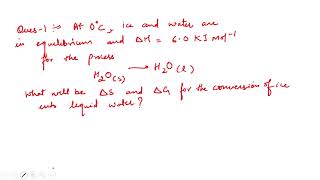 Ques-1 :- At 0°C, ice and water are
in equilibrium and ΔH = 6.0 KJ mol⁻¹
for the process
H₂O(s) ⟶ H₂O(l)
What will be ΔS and ΔG for the conversion of ice
into liquid water?